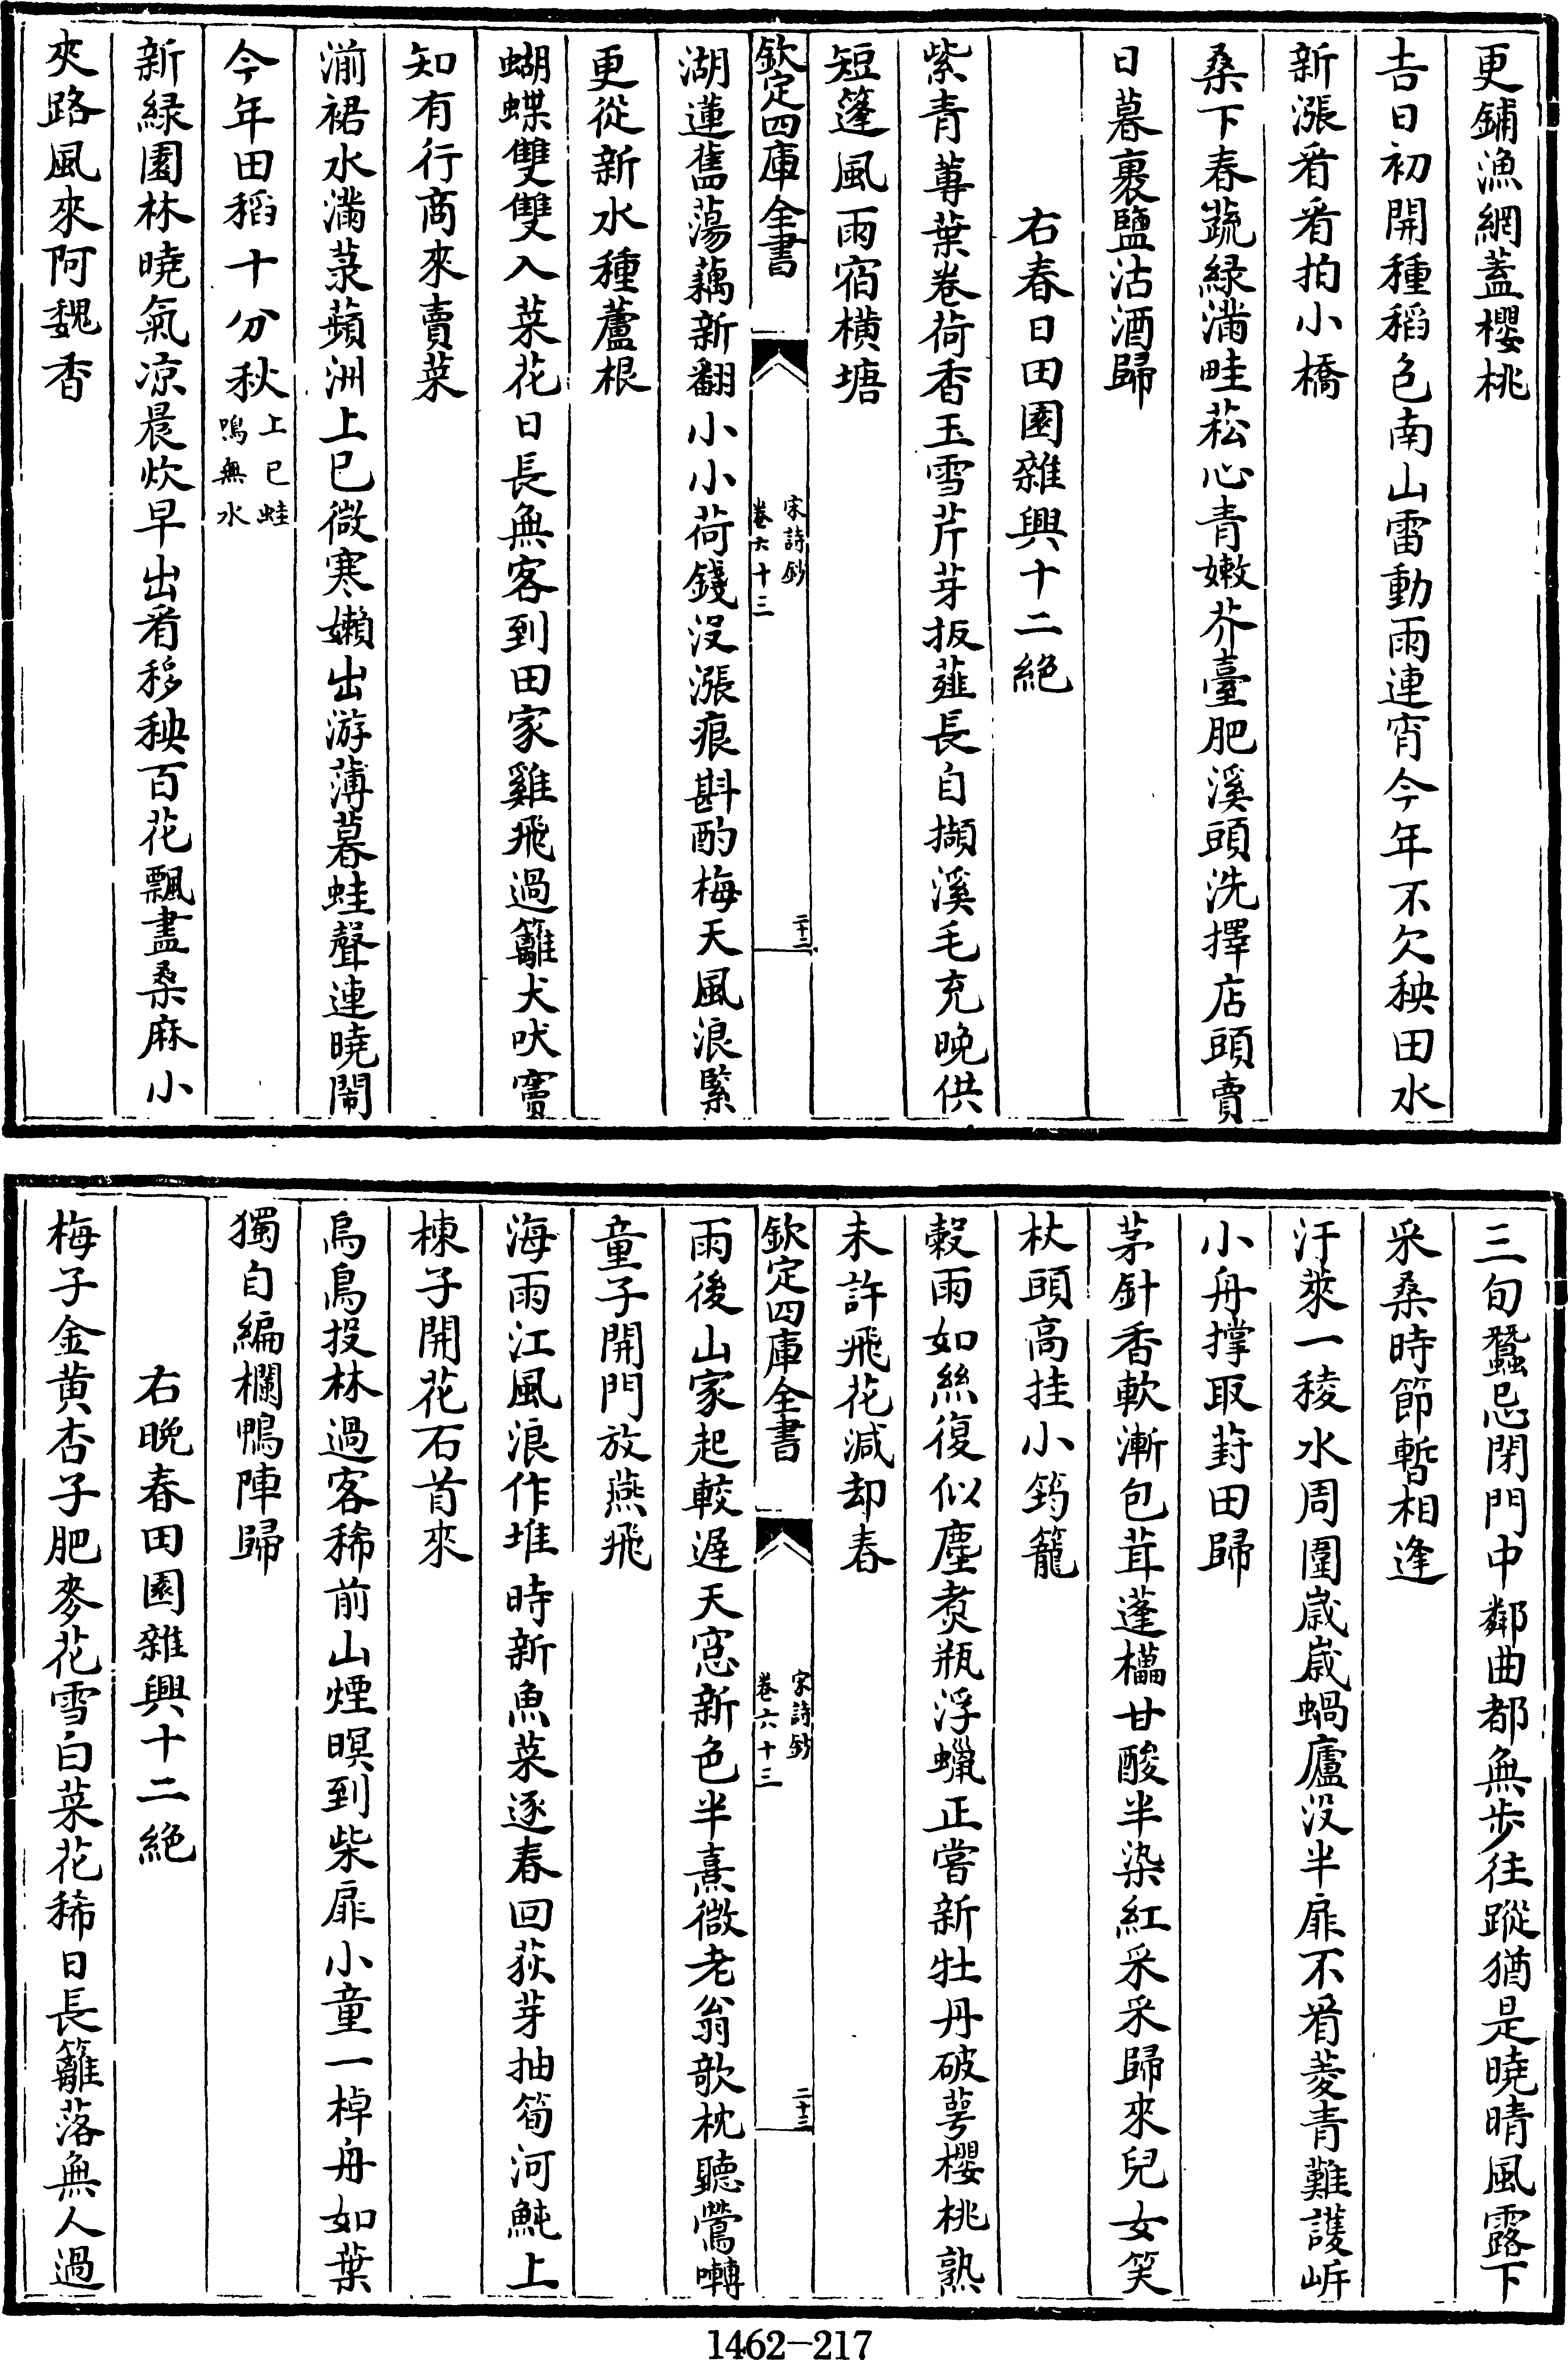 更鋪漁網蓋櫻桃
吉日初開種稻包南山雷動雨連宵今年不欠秧田水
新漲看看拍小橋
桑下春蔬綠滿畦菘心青嫩芥臺肥溪頭洗擇店頭賣
日暮裹鹽沽酒歸
右春日田園雜興十二絶
紫青蓴葉卷荷香玉雪芹芽拔薤長自擷溪毛充晚供
短篷風雨宿横塘
欽定四庫全書
宋詩鈔
卷六十三
二十二
湖蓮舊蕩藕新翻小小荷錢沒漲痕斟酌梅天風浪緊
更從新水種蘆根
蝴蝶雙雙入菜花日長無客到田家雞飛過籬犬吠竇
知有行商來賣菜
湔裙水滿菉蘋洲上巳微寒嬾出游薄暮蛙聲連曉鬧
今年田稻十分秋上巳蛙
鳴無水
新緑園林曉氣凉晨炊早出看移秧百花飄盡桑麻小
夾路風來阿魏香
三旬蠶忌閉門中鄰曲都無步往蹤猶是曉晴風露下
采桑時節暫相逢
汙萊一稜水周圍歲歲蝸廬沒半扉不看菱青難護岸
小舟撑取葑田歸
茅針香軟漸包茸蓬櫑甘酸半染紅采采歸來兒女笑
杖頭高挂小筠籠
穀雨如絲復似塵煑瓶浮蠟正嘗新牡丹破萼櫻桃熟
未許飛花減却春
欽定四庫全書
宋詩鈔
卷六十三
二十三
雨後山家起較遲天窓新色半熹微老翁欹枕聽鶯囀
童子開門放燕飛
海雨江風浪作堆時新魚菜逐春回荻芽抽筍河魨上
楝子開花石首來
烏鳥投林過客稀前山煙暝到柴扉小童一棹舟如葉
獨自編欄鴨陣歸
右晚春田園雜興十二絶
梅子金黄杏子肥麥花雪白菜花稀日長籬落無人過
1462-217